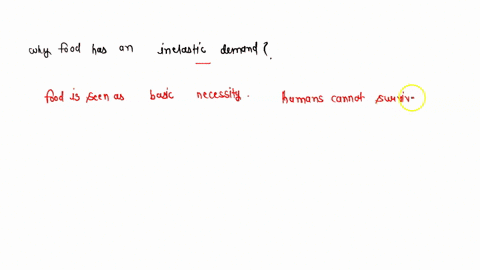 why food has an inelastic demand?.
food is seen as basic necessity. humans cannot surviv